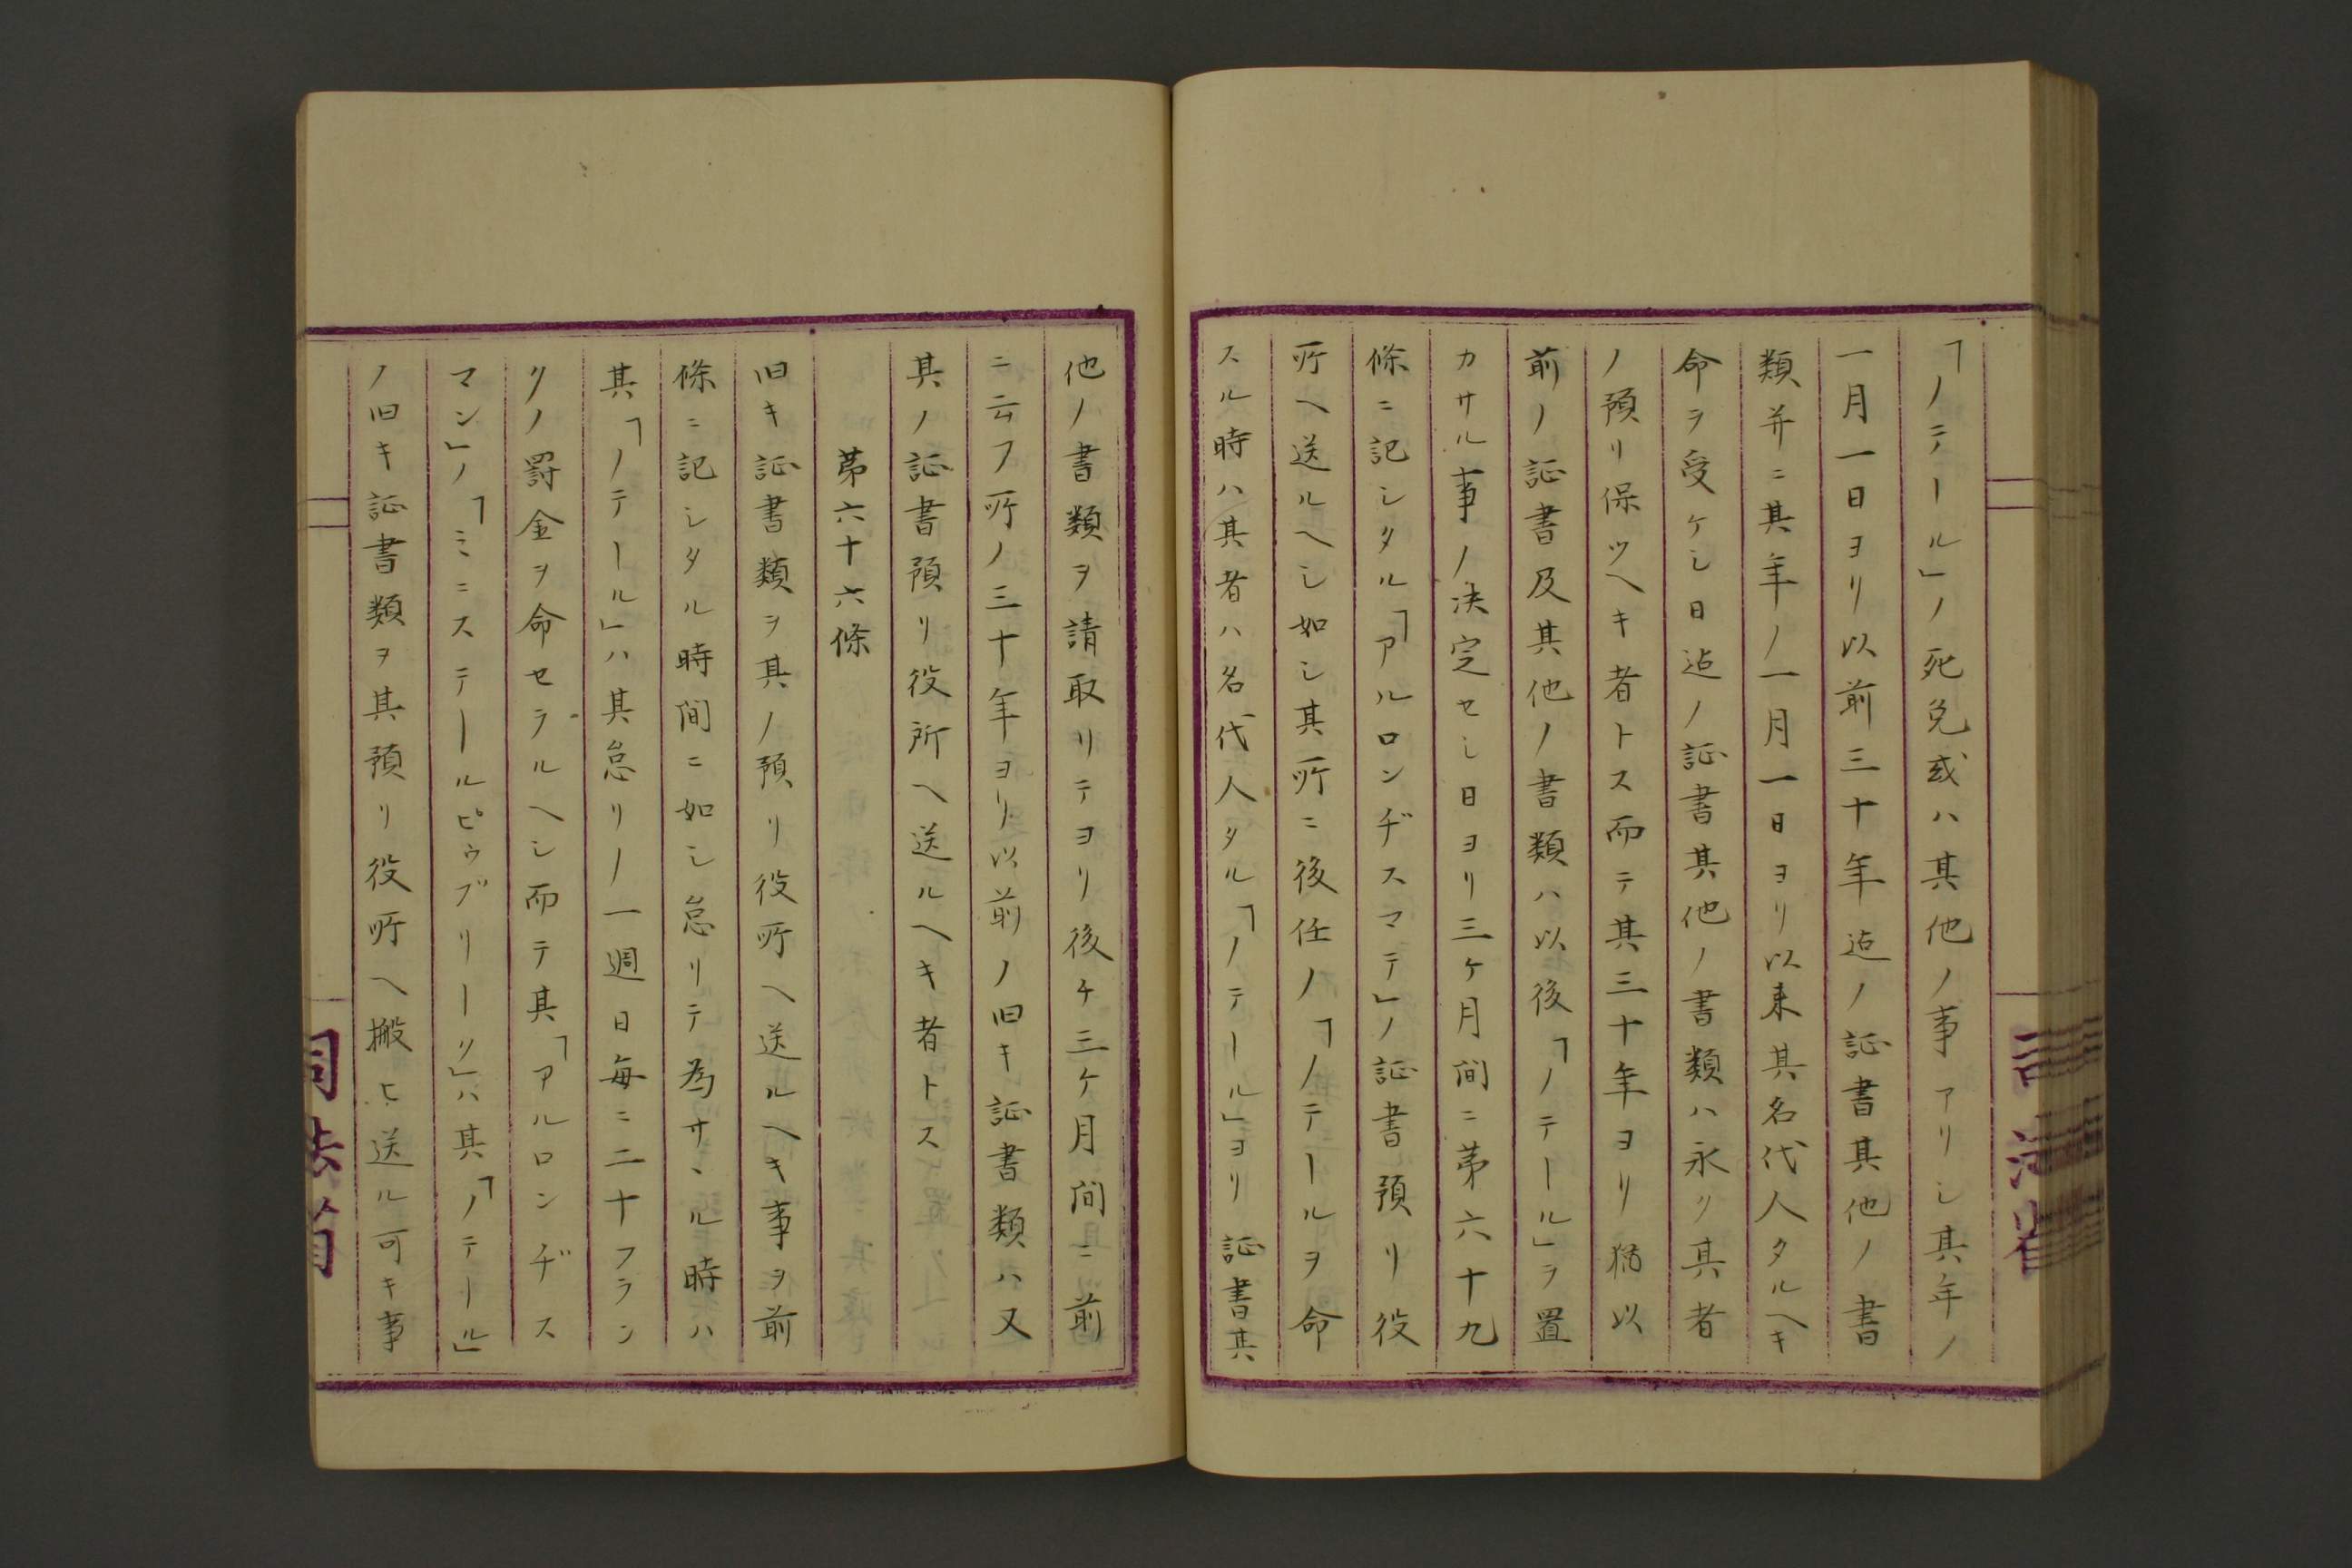 「ノテール」ノ死免或ハ其他ノ事アリシ其年ノ
一月一日ヨリ以前三十年迠ノ証書其他ノ書
類并ニ其年ノ一月一日ヨリ以来其名代人タルヘキ
命ヲ受ケシ日迠ノ証書其他ノ書類ハ永ク其者
ノ預リ保ツヘキ者トス而テ其三十年ヨリ猶以
前ノ証書及其他ノ書類ハ以後「ノテール」ヲ置
カサル事ノ决定セシ日ヨリ三ケ月間ニ第六十九
條ニ記シタル「アルロンヂスマテ」ノ証書預リ役
所ヘ送ルヘシ如シ其所ニ後任ノ「ノテールヲ命
スル時ハ其者ハ名代人タル「ノテール」ヨリ証書其
他ノ書類ヲ請取リテヨリ後チ三ケ月間ニ前
ニ云フ所ノ三十年ヨリ以前ノ旧キ証書類ハ又
其ノ証書預リ役所ヘ送ルヘキ者トス
第六十六條
旧キ証書類ヲ其ノ預リ役所ヘ送ルヘキ事ヲ前
條ニ記シタル時間ニ如シ怠リテ為サヽル時ハ
其「ノテール」ハ其怠リノ一週日毎ニ二十フラン
クノ罸金ヲ命セラルヘシ而テ其「アルロンヂス
マン」ノ「ミニステールピゥブリーク」ハ其「ノテール」
ノ旧キ証書類ヲ其預リ役所ヘ搬ヒ送ル可キ事
司法省